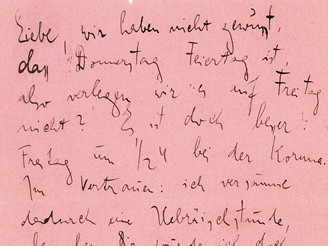 Liebe, wir haben nicht gewußt,
daß Donnerstag Feiertag ist,
also verlegen wir es auf Freitag
nicht? Es ist doch besser?
Freitag um 1/2 4 bei der Koruna.
Im Vertrauen: ich versäume
dadurch eine Hebräischstunde,